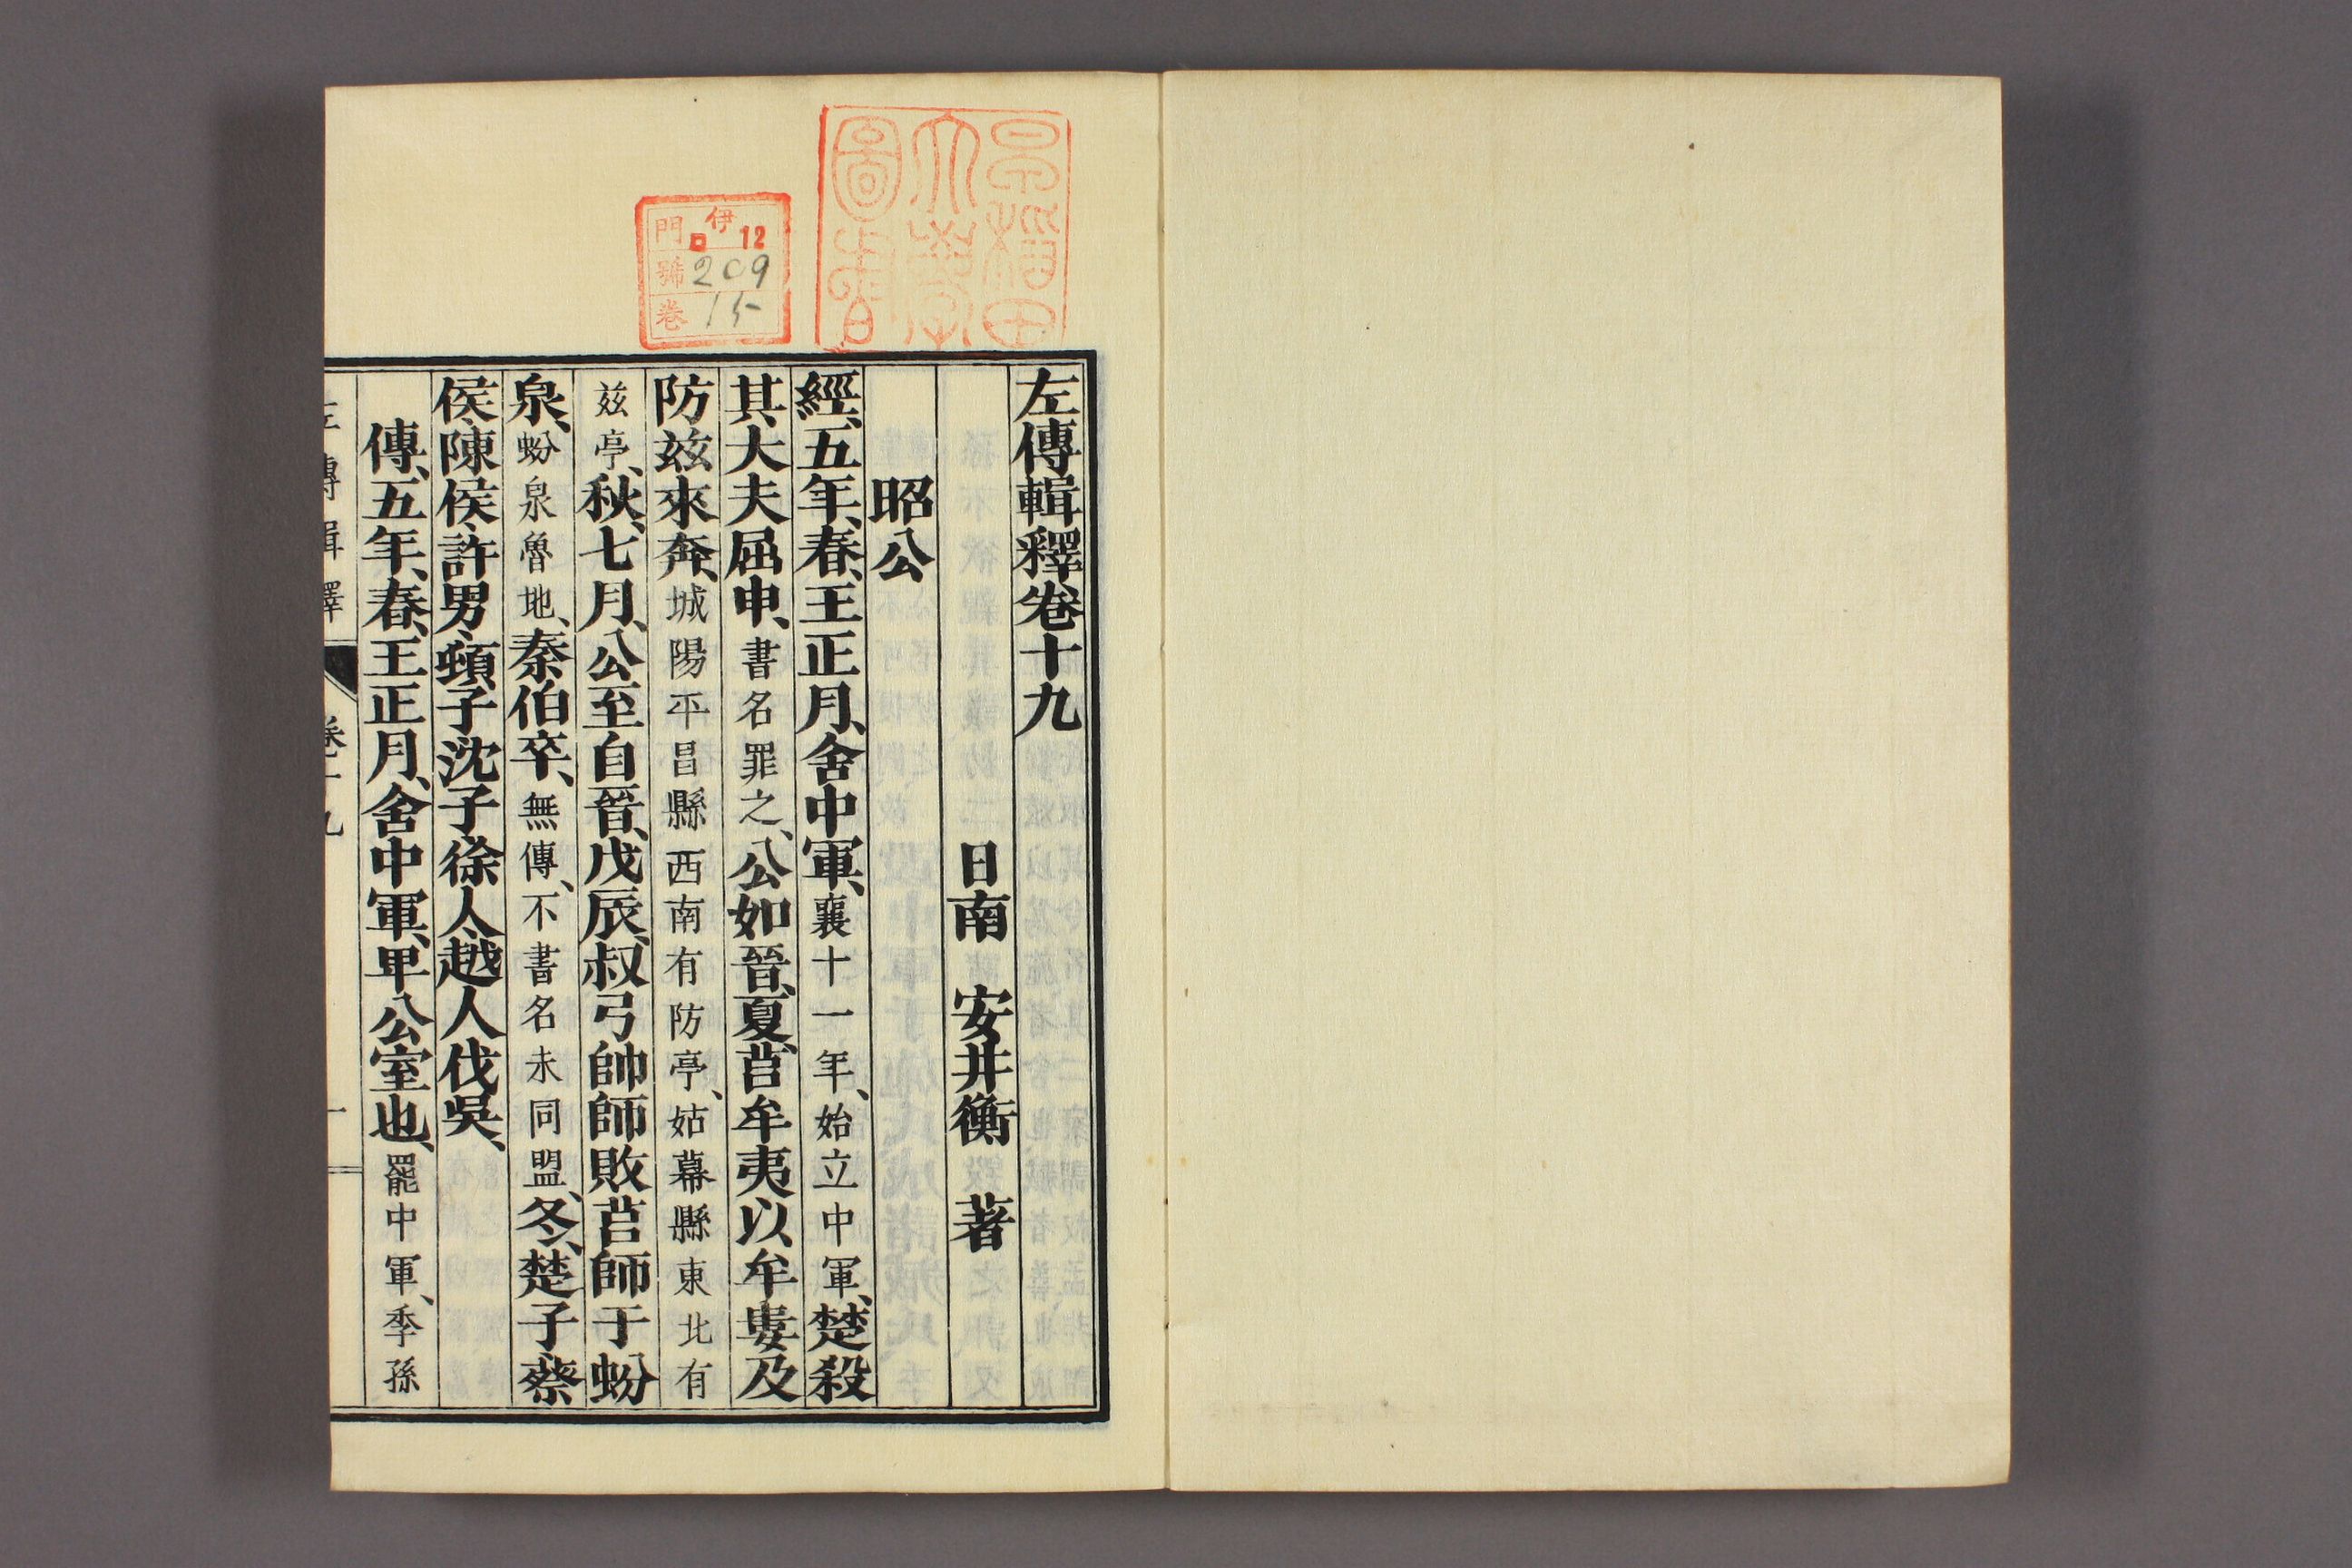 早稲田
大學
圖書
門 伊 12
號 209
卷 15
左傳輯釋卷十九
日南 安井衡 著
昭公
經、五年、春、王正月、舍中軍、襄十一年、始立中軍、楚殺
其大夫屈申、書名罪之、公如晉、夏、莒牟夷以牟婁及
防玆來奔、城陽平昌縣西南有防亭、姑幕縣東北有
玆亭、秋、七月、公至自晉、戊辰、叔弓帥師敗莒師于蚡
泉、蚡泉魯地、秦伯卒、無傳、不書名未同盟、冬、楚子、蔡
侯、陳侯、許男、頓子、沈子、徐人、越人伐吳、
傳、五年、春、王正月、舍中軍、卑公室也、罷中軍、季孫
左傳輯釋 卷十九 一